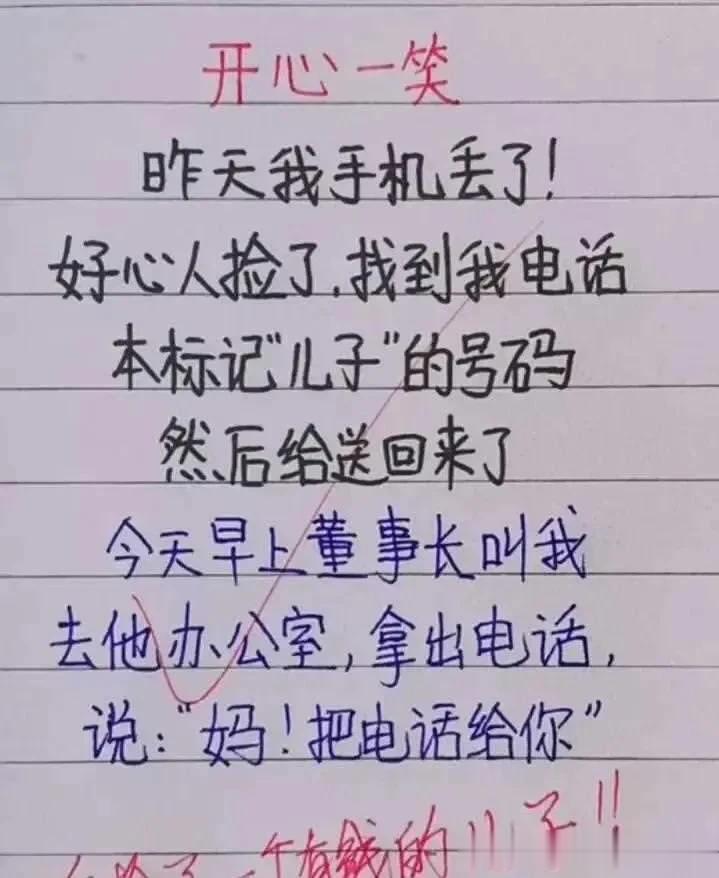 开心一笑
昨天我手机丢了！
好心人捡了.找到我电话
本标记"儿子"的号码
然后给送回来了
今天早上董事长叫我
去他办公室,拿出电话,
说:"妈！把电话给你"
一个有钱的儿子!!